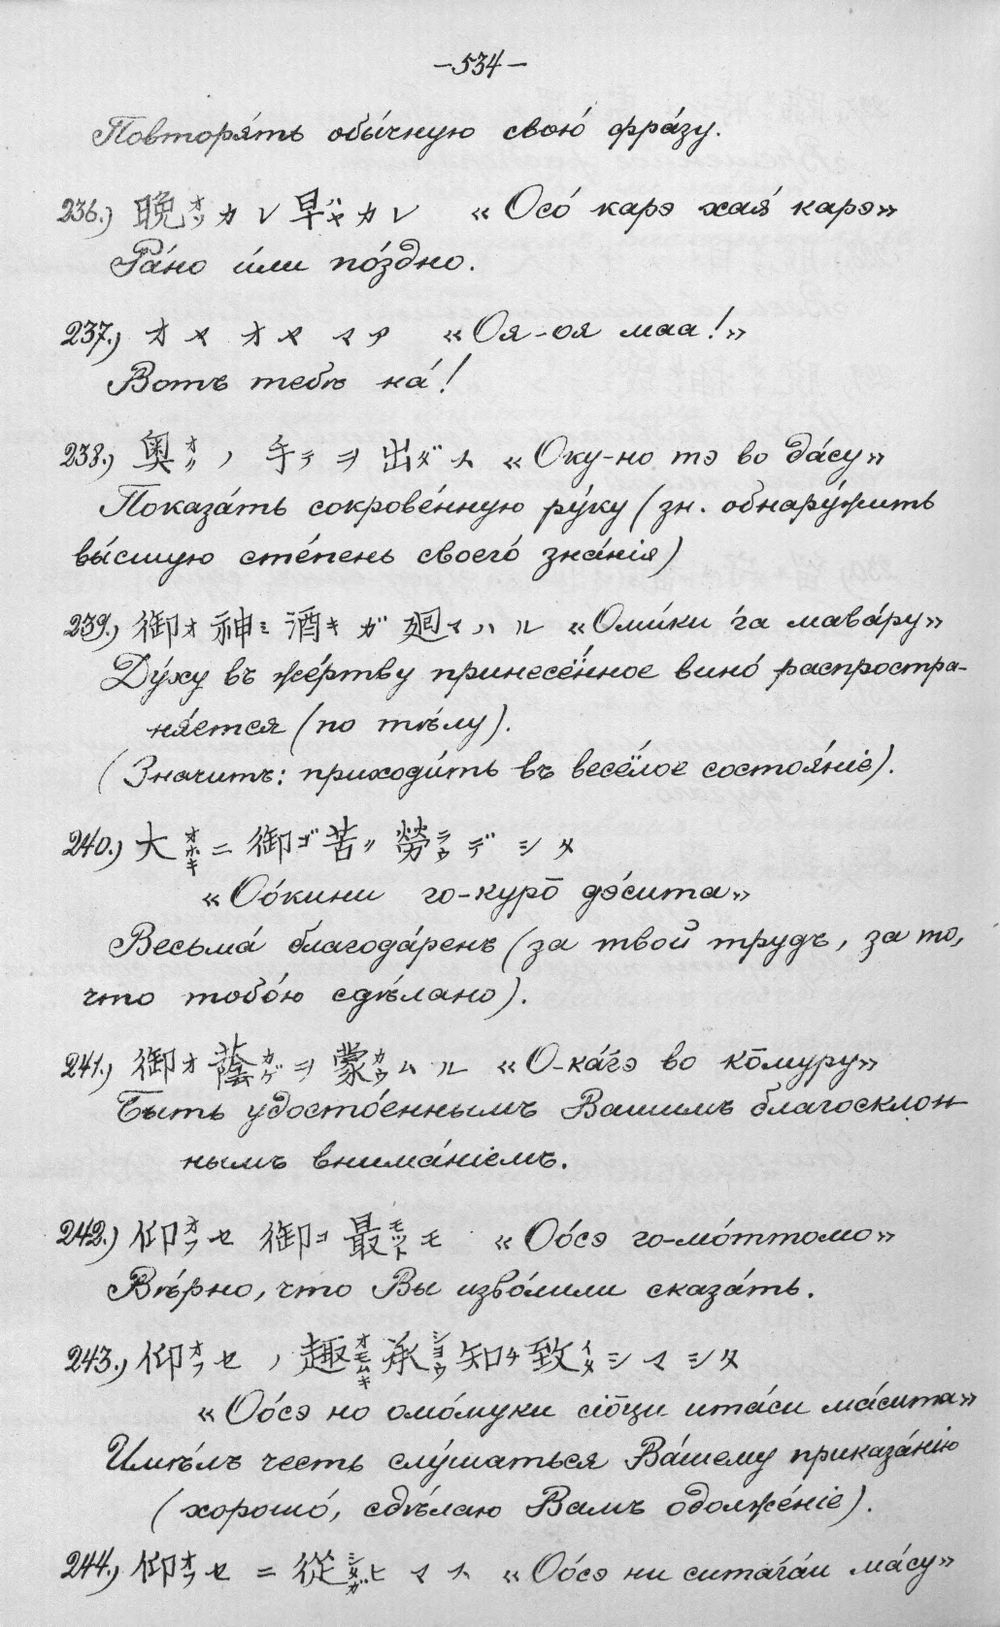 —534—
Повторя́ть обы́чную свою́ фра́зу.
236.) 晩オソカレ早ハヤカレ «Осо́ карэ хая́ карэ»
Ра́но и́ли по́здно.
237.) オヤ オヤ マア «Оя-оя маа!»
Вотъ тебѣ на́!
238.) 奥オクノ 手テヲ 出ダス «Оку-но тэ во да́су»
Показа́ть сокрове́нную ру́ку (зн. обнару́жить
вы́сшую сте́пень своего́ зна́нія)
239.) 御オ神ミ酒キガ廻マハル «Оми́ки г̄а мава́ру»
Ду́ху въ же́ртву принесё́нное вино́ распростра-
ня́ется (по тѣ́лу).
(Значитъ: приходи́ть въ весё́лое состоя́ніе).
240.) 大オホキニ御ゴ苦ク勞ラウデシタ
«Оо́кини го-куро̄ дэ́сита»
Весьма́ благода́ренъ (за твой трудъ, за то,
что тобо́ю сдѣ́лано).
241.) 御オ蔭カゲヲ蒙カウムル «О-ка́г̄э во ко̄муру»
Быть удосто́еннымъ Вашимъ благосклон
нымъ внима́ніемъ.
242.) 仰オフセ 御コ最モットモ «Оо́сэ го-мо́ттомо»
Вѣ́рно, что Вы изво́лили сказа́ть.
243.) 仰オフセノ趣オモムキ承シヨウ知チ致イタシマシタ
«Оо́сэ но омо́муки сіо̄ци ита́си ма́сита»
Имѣ́лъ честь слу́шаться Ва́шему приказа́нію
(хорошо́, сдѣ́лаю Вамъ одолже́ніе).
244.) 仰オフセニ從シタガヒマス «Оо́сэ ни ситаг̄а́и ма́су»